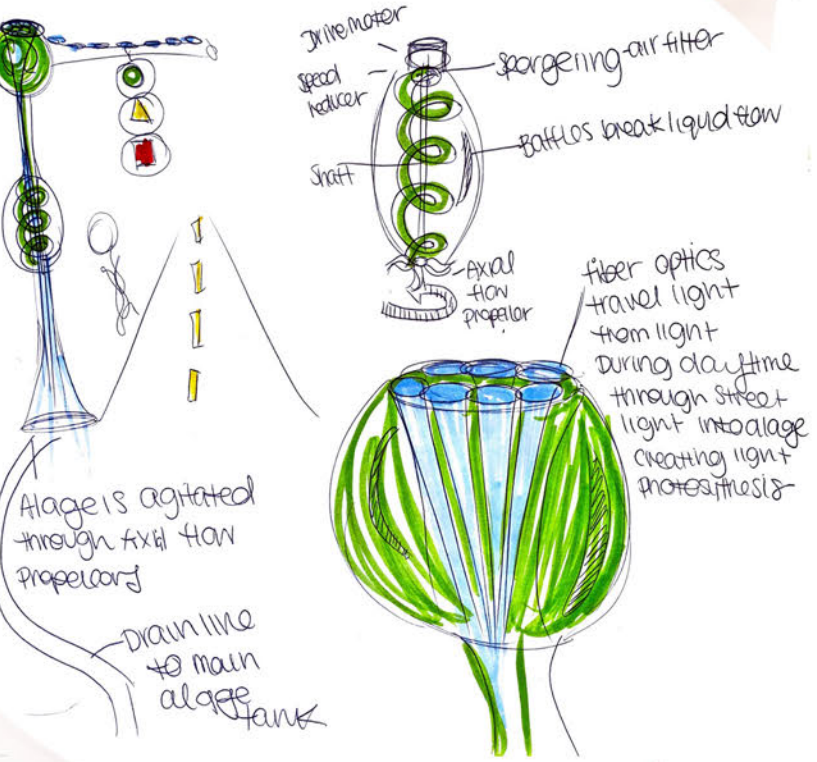 Drive moter
speed
reducer
Shaft
Spargering-air filter
Baffles break liquid flow
Axial
flow
propellor
fiber optics
travel light
from light
During daytime
through street
light into alage
creating light
photosithesis
Alage is agitated
through Axial flow
Propellors
Drain line
to main
alage
tank